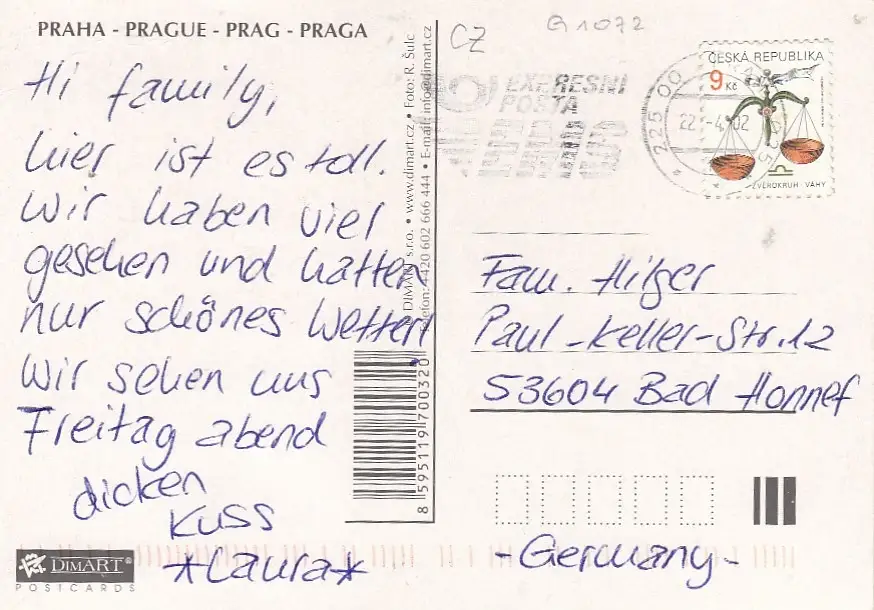 PRAHA - PRAGUE - PRAG - PRAGA
Hi family,
hier ist es toll.
Wir haben viel
gesehen und hatten
nur schönes Wetter!
Wir sehen uns
Freitag abend
dicken
Kuss
*Laura*
DIMART®
POSTCARDS
© DIMART s.r.o. • www.dimart.cz • Foto: R. Šulc
Telefon: +420 602 666 444 • E-mail: info@dimart.cz
8 595119 700320
CZ
G1072
EXPRESNÍ
POŠTA
EMS
225 00
22.-4.02
025
ČESKÁ REPUBLIKA
9 Kč
ZVĚROKRUH - VÁHY
Fam. Hilger
Paul-Keller-Str.12
53604 Bad Honnef
-Germany-